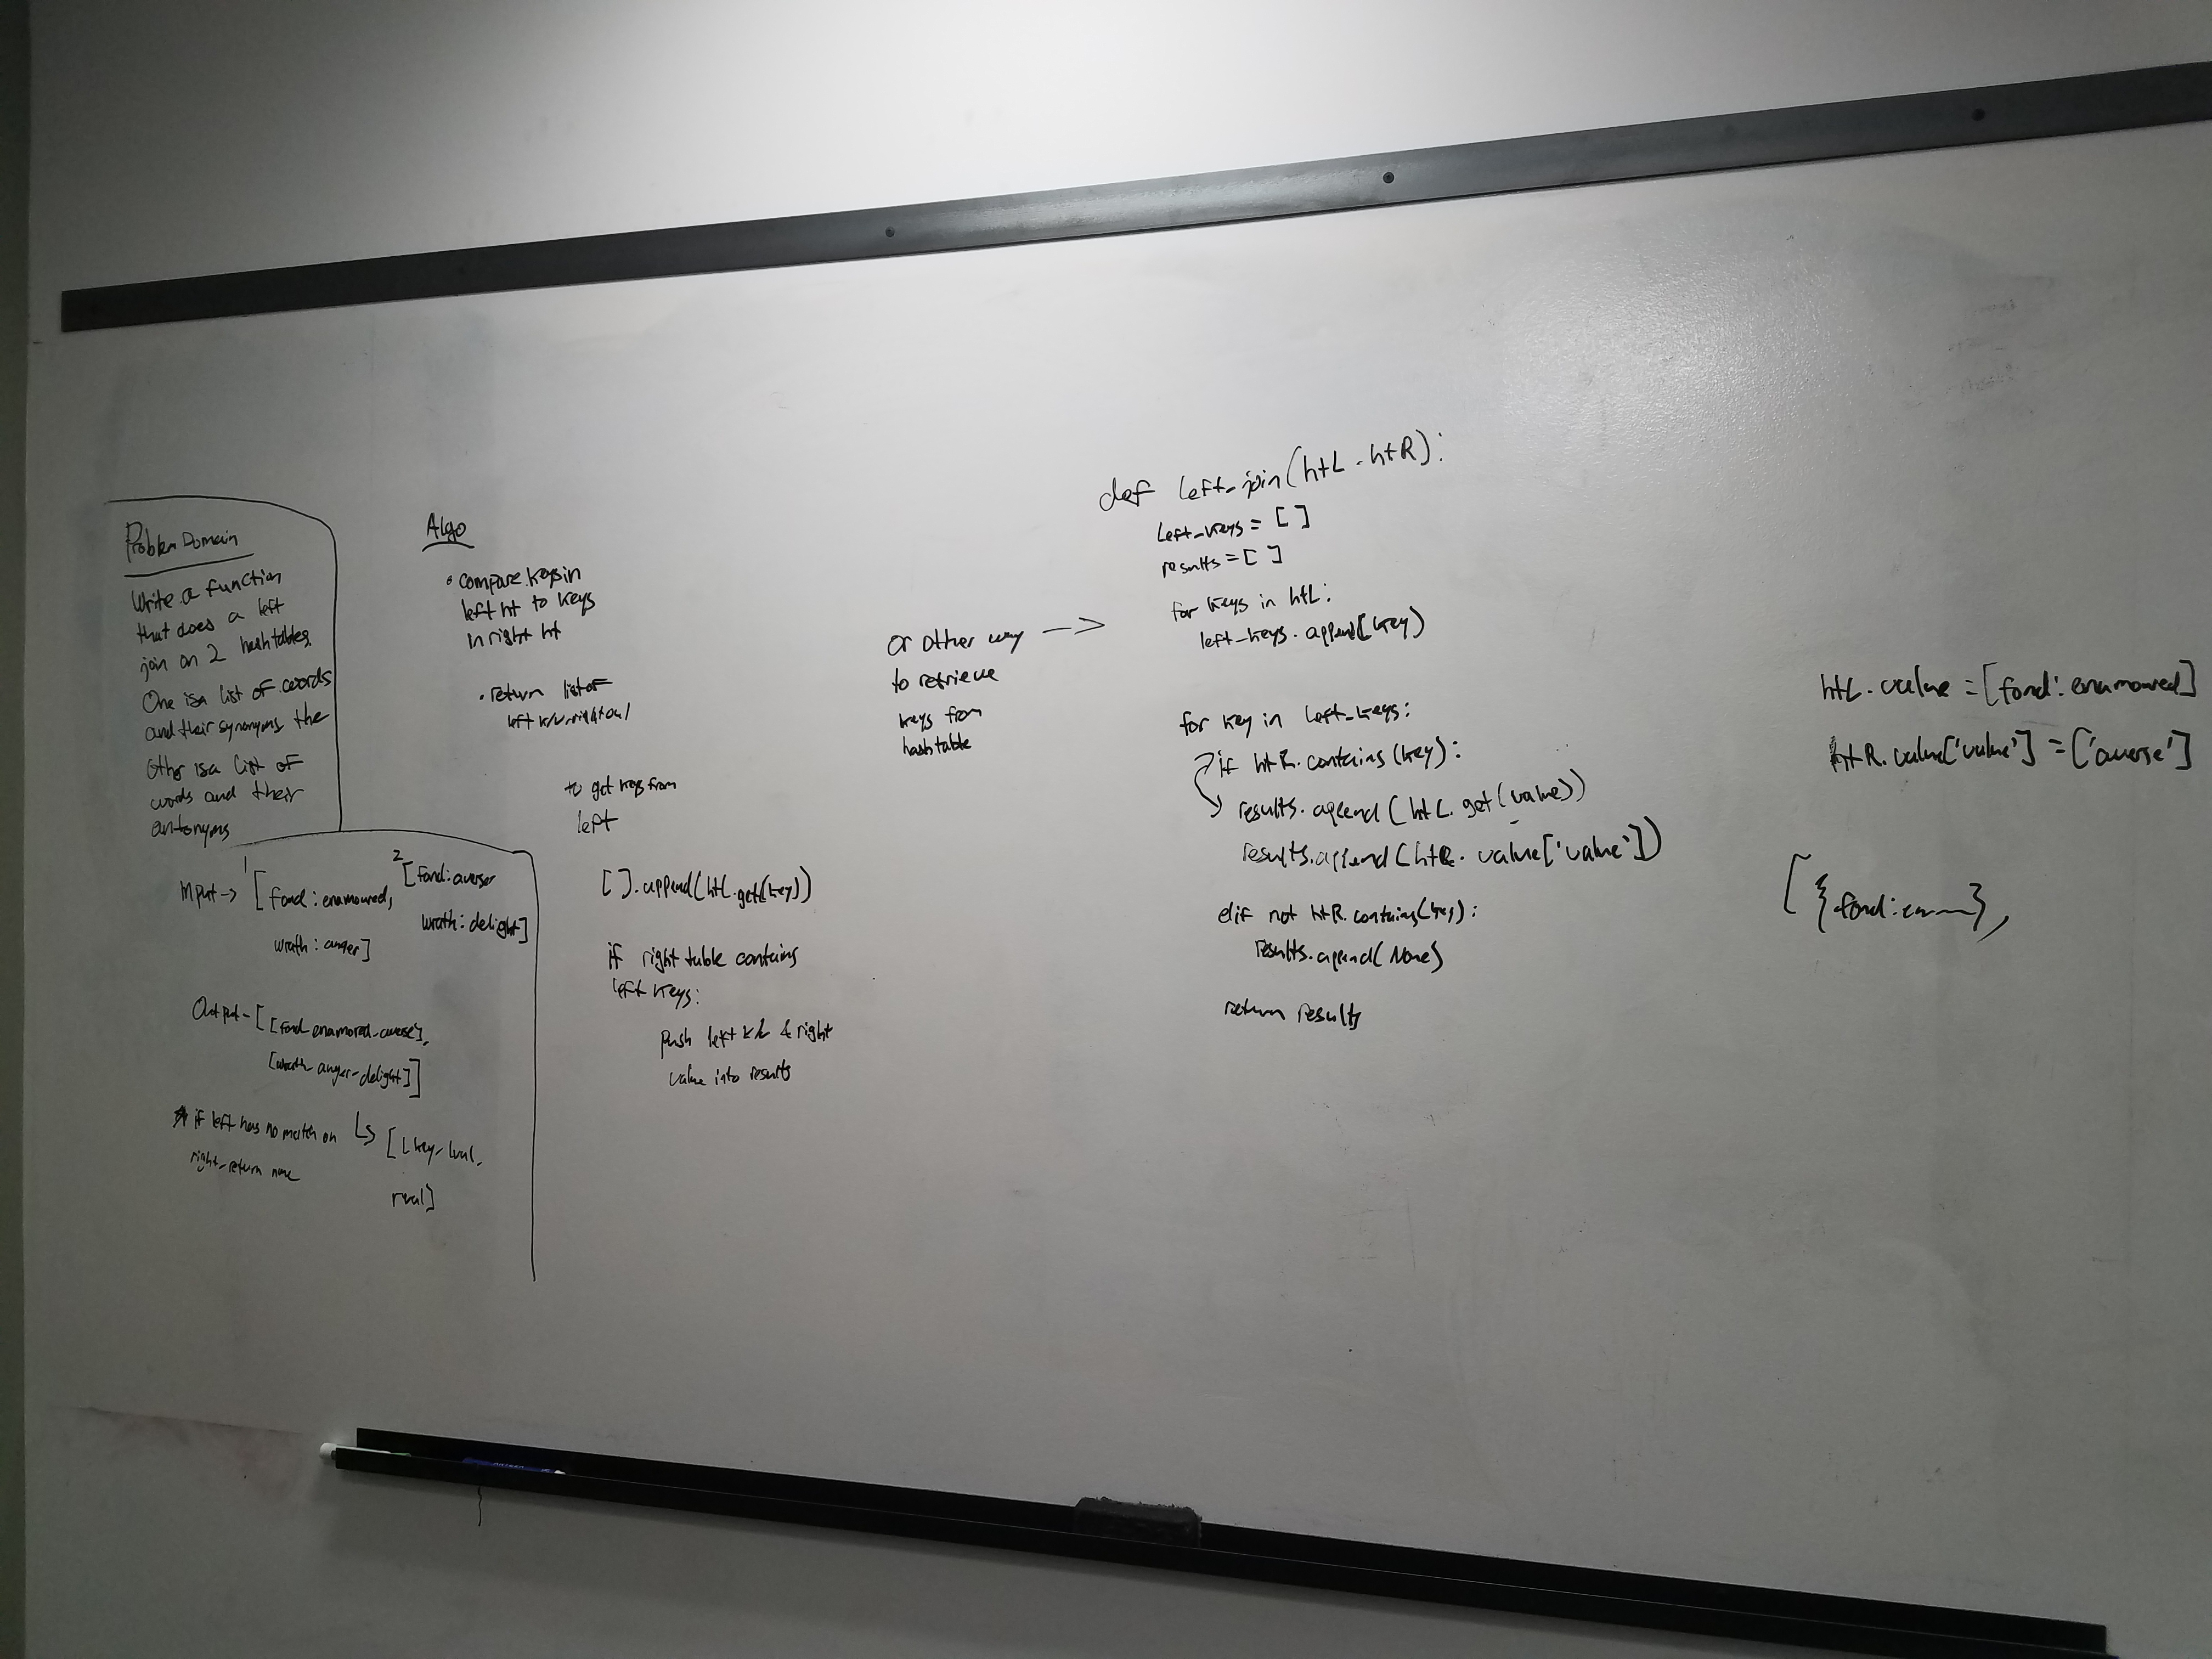 Problem Domain
Write a function
that does a left
join on 2 hashtables.
One is a list of words
and their synonyms the
other is a list of
words and their
antonyms
Input -> 1 [fond: enamoured,
wrath: anger]
2 [fond: averse
wrath: delight]
Output - [[fond_enamored_averse],
[wrath_anger-delight]]
* if left has no match on
right-return none
↳ [Lkey-lval-
rval]
Algo
• compare keys in
left ht to keys
in right ht
• return list of
left k/v-right val
to get keys from
left
[ ].append(htL.get(key))
if right table contains
left keys:
push left k/v & right
value into results
or other way
to retrieve
keys from
hashtable
def left_join(htL, htR):
left_keys = [ ]
results = [ ]
for keys in htL:
left_keys.append(key)
for key in left_keys:
if htR.contains(key):
results.append(htL.get(value))
results.append(htR.value['value'])
elif not htR.contains(key):
results.append(None)
return results
htL.value = [fond: enamoured]
htR.value['value'] = ['averse']
[{fond: